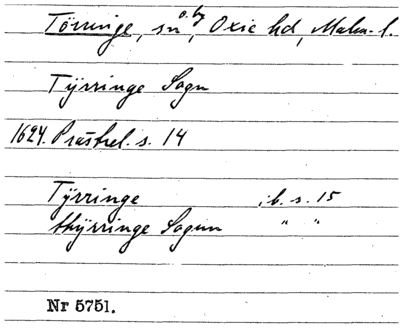 Törringe, sn o. by, Oxie hd, Malm. l.
Tÿrringe Sogn
1624. Prästrel. s. 14
Tÿrringe ib. s. 15
thÿrringe Sognn " "
Nr 5751.